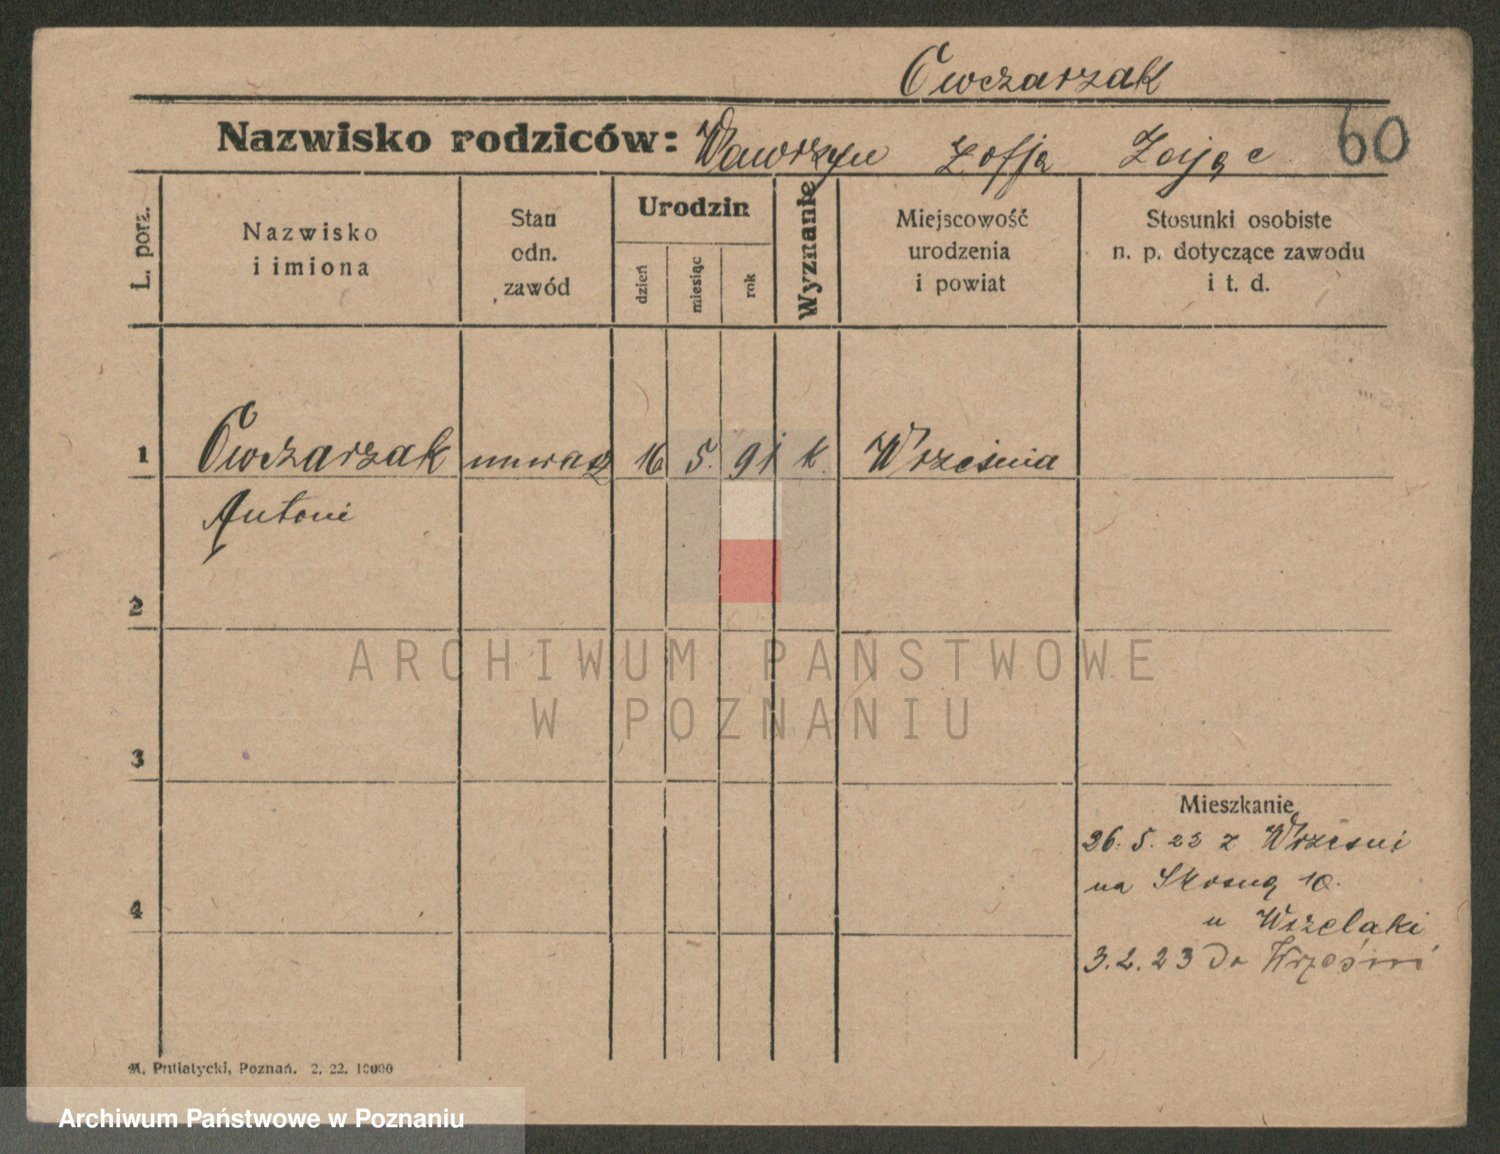 Owczarzak
Nazwisko rodziców: Wawrzyn Zofja Zając 60
L. porz.
Nazwisko
i imiona
Stan
odn.
zawód
Urodzin
dzień
miesiąc
rok
Wyznanie
Miejscowość
urodzenia
i powiat
Stosunki osobiste
n. p. dotyczące zawodu
i t. d.
1 Owczarzak murarz 16 5. 91 k. Września
Antoni
2
ARCHIWUM PAŃSTWOWE
W POZNANIU
3
Mieszkanie
26. 5. 22 z Wrześni
na Skosną 10.
4
u Wszelaki
3.2.23 do Wrześni
M. Putiatycki, Poznań. 2. 22. 10000
Archiwum Państwowe w Poznaniu